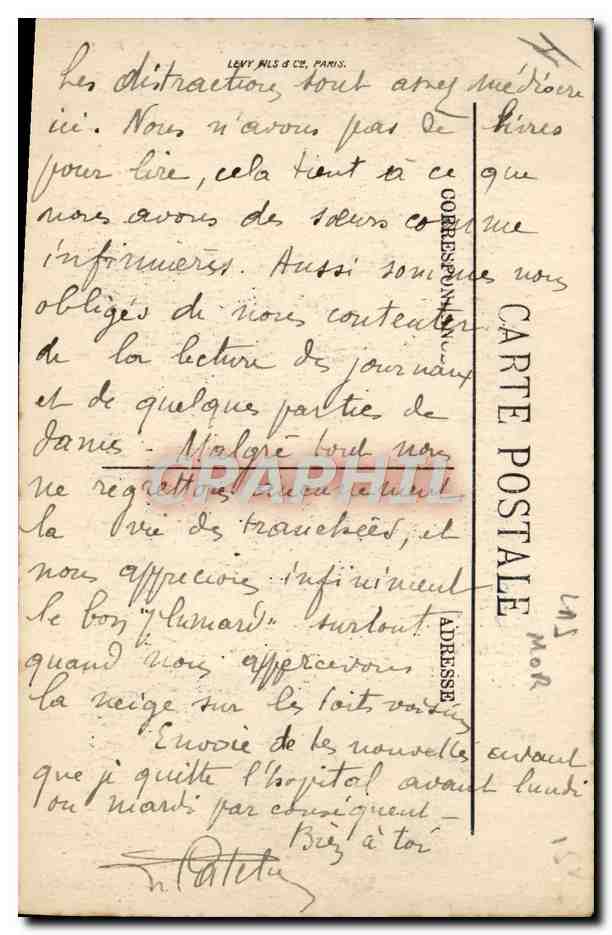 LEVY FILS & Cie, PARIS.
Les distractions sont assez médiocre
ici. Nous n'avons pas de livres
pour lire, cela tient à ce que
nous avons des sœurs comme
infirmières. Aussi sommes nous
obligés de nous contenter
de la lecture des journaux
et de quelques parties de
dames - Malgré tout nous
ne regrettons aucunement
la vie des tranchées, et
nous apprecions infiniment
le bon "plumard" surtout
quand nous appercevons
la neige sur les toits voisins
Envoie de tes nouvelles avant
que je quitte l'hopital avant lundi
ou mardi par conséquent -
Bien à toi
CARTE POSTALE
CORRESPONDANCE
ADRESSE
MOR
GRAPHIL